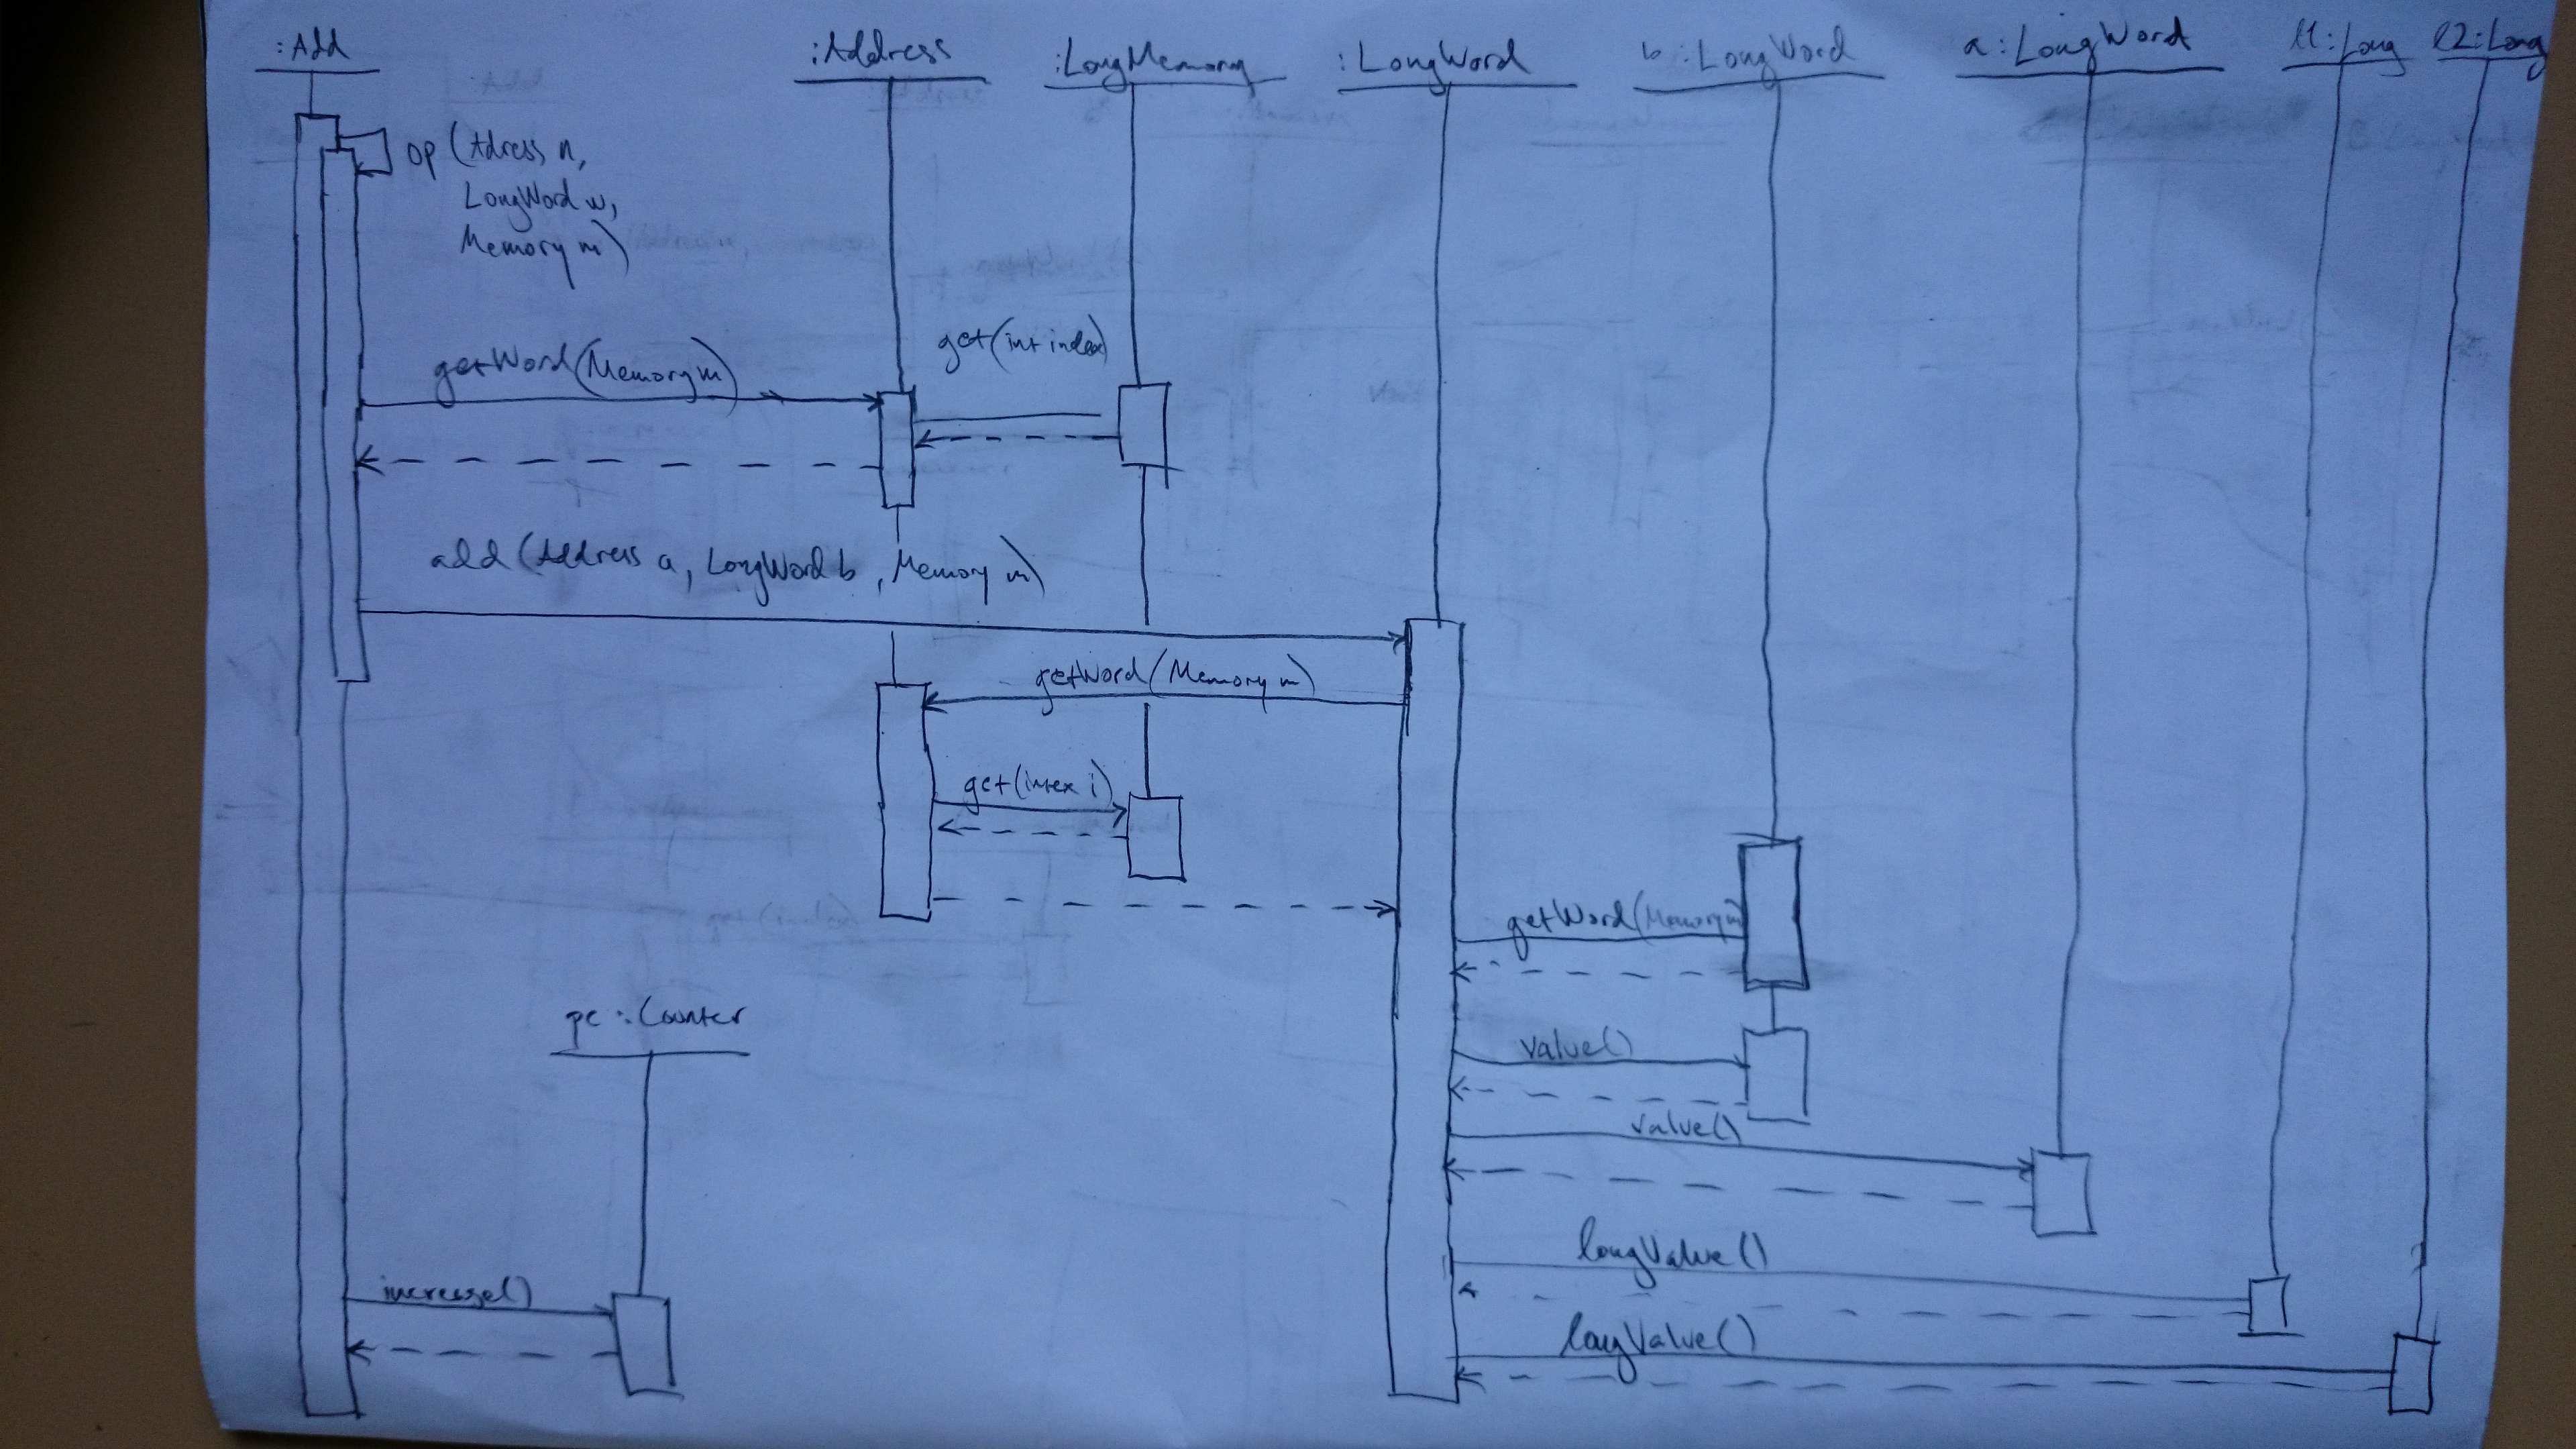 :Add
:Address
:LongMemory
:LongWord
b:LongWord
a:LongWord
l1:Long
l2:Long
op (Adress n,
LongWord w,
Memory m)
getWord(Memory m)
get(int index)
add (Address a, LongWord b, Memory m)
getWord(Memory m)
get(index i)
getWord(Memory m)
value()
value()
longValue()
longValue()
pc:Counter
increase()